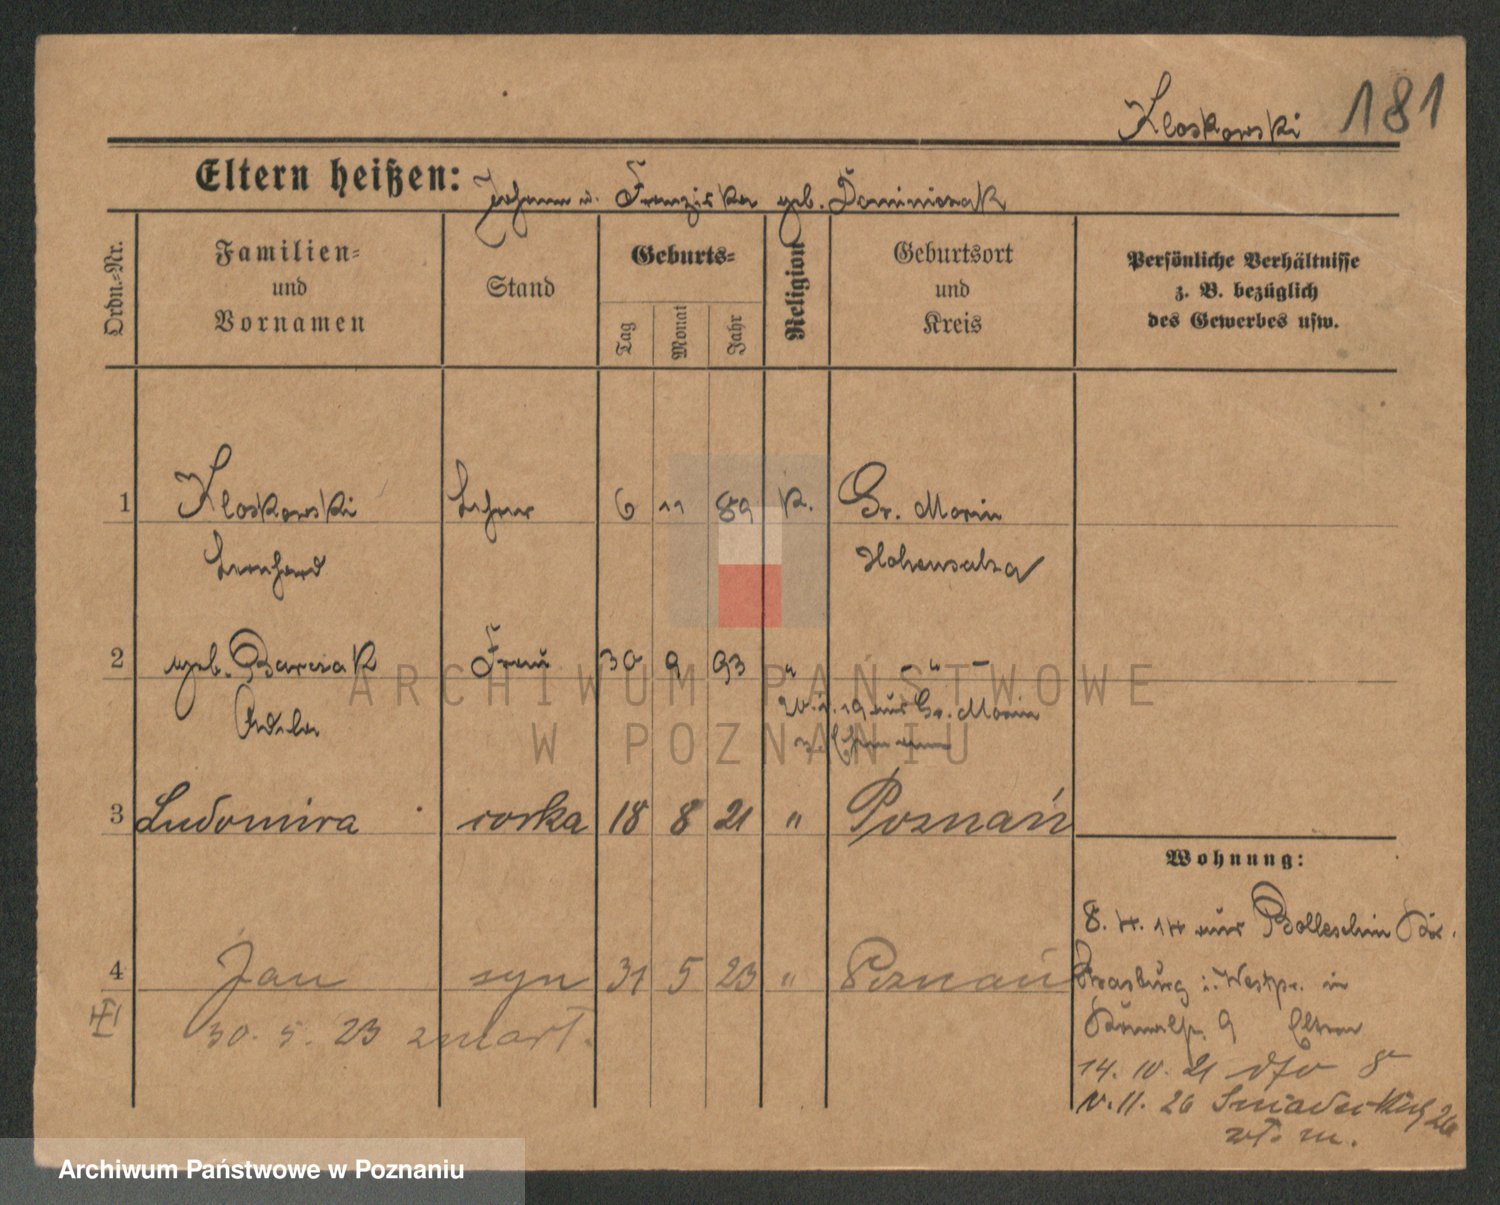 Kloskowski 181
Eltern heißen: Johann u. Franziska geb. Dominiczak
Ordn.=Nr.
Familien=
und
Vornamen
Stand
Geburts=
Tag
Monat
Jahr
Religion
Geburtsort
und
Kreis
Persönliche Verhältnisse
z. B. bezüglich
des Gewerbes usw.
1 Kloskowski Lehrer 6 11 89 K. Gr. Morin
Leonhard Hohensalza
2 geb. Barczak Frau 30 9 93 " - " -
19 aus Gr. Morin
z. Ehemann
3 Ludomira corka 18 8 21 " Poznań
Wohnung:
8. 4. 14 aus Bolleschin Kr.
4 Jan syn 31 5 23 " Poznań
Strasburg i. Westpr. in
30. 5. 23 zmarł.
9 Eltern
14. 10. 21 dto 8
26 Śniadeckich 26
m.
ARCHIWUM PAŃSTWOWE
W POZNANIU
Archiwum Państwowe w Poznaniu